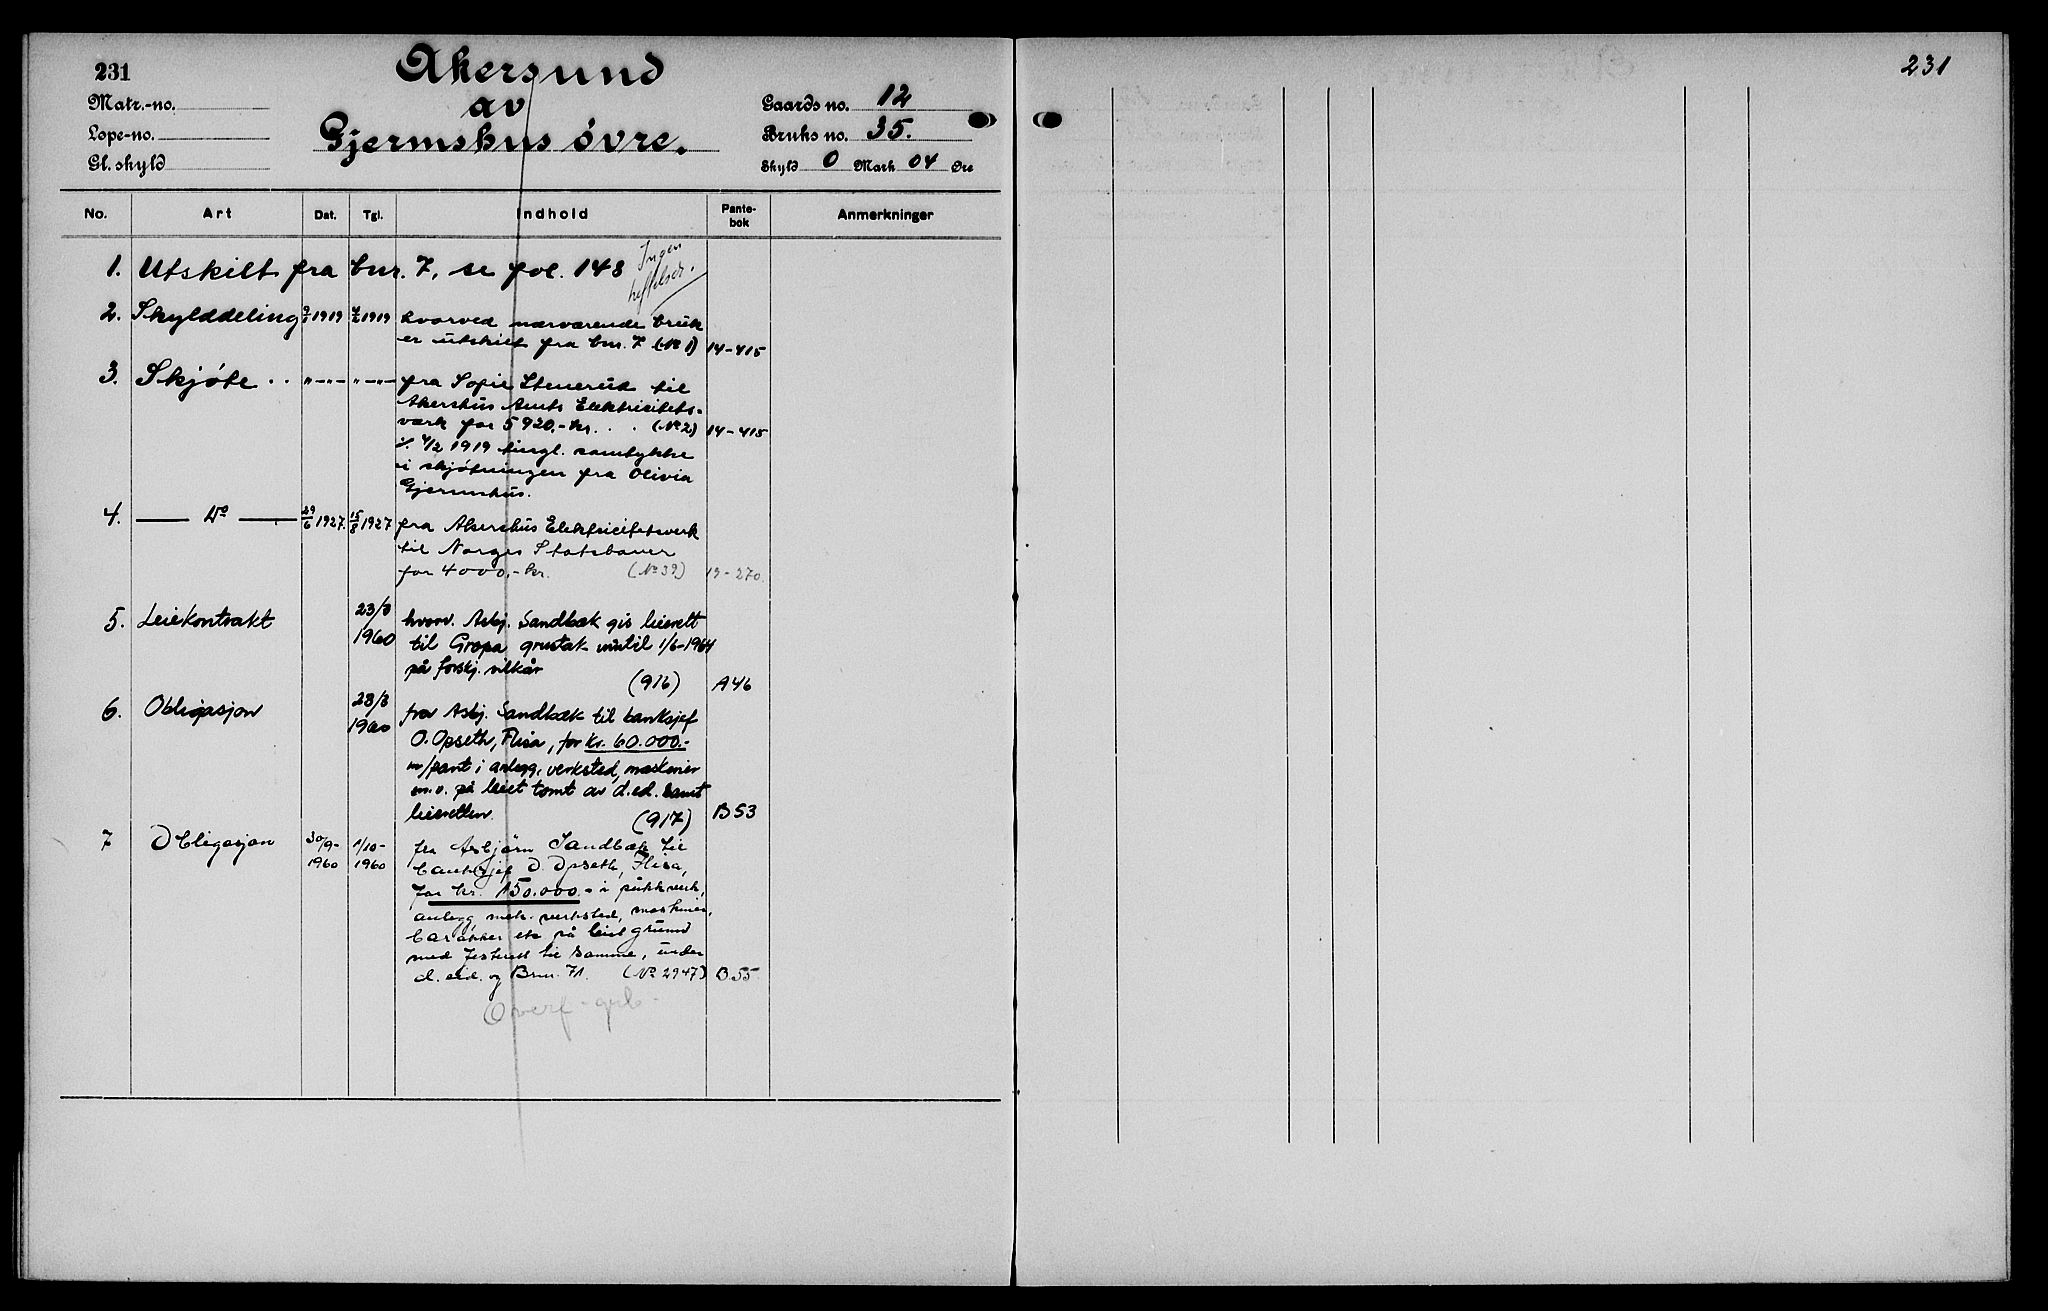 231
Akersund
av
Gjermshus övre.
Matr.-no.
Løpe-no.
Gl. skyld
Gaards no. 12
Bruks no. 35.
Skyld 0 Mark 04 Øre
231
No. Art Dat. Tgl. Indhold Pante-bok Anmerkninger
Ingen
heftelser.
1. Utskilt fra bnr. 7, se fol. 148
2. Skylddeling 1919 1919 hvorved nærværende bruk
er utskilt fra bnr. 7 (No 1) 14-415
3. Skjöte . . "-"- "-"- fra Sofie Stenerud til
Akershus Amts Elektricitets-
værk for 5920,- kr. . . (No 2) 14-415
4/2 1919 tingl. samtykke
i skjötningen fra Olivia
Gjermshus.
4. — Do — 29/6 1927. 15/8 1927 fra Akershus Elektricitetsverk
til Norges Statsbaner
for 4000,- kr. (No 39) 19-270.
5. Leiekontrakt 23/8 1960 hvorv. Asbj. Sandbæk gis leierett
til Gropa grustak inntil 1/6-1964
på forskj. vilkår
(916) A46
6. Obligasjon 23/8 1960 fra Asbj. Sandbæk til banksjef
O. Opseth, Flisa, for kr. 60.000.-
m/pant i anlegg, verksted, maskiner
m.v. på leiet tomt av d.ed. samt
leieretten.
(917) B53
7 Obligasjon 30/9-1960 1/10-1960 fra Asbjörn Sandbæk til
banksjef O. Opseth, Flisa,
for kr. 150.000.- i pukkverk,
anlegg mek. verksted, maskiner,
barakker etc på leiet grunn
med festerett til samme, under
d. eid. og Bnr. 71. (No 2947) B55
Overf. grb.